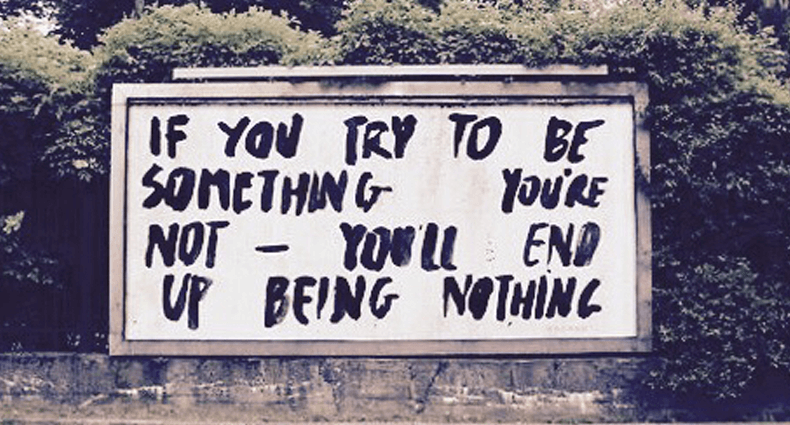 IF YOU TRY TO BE
SOMETHING YOU'RE
NOT – YOU'LL END
UP BEING NOTHING